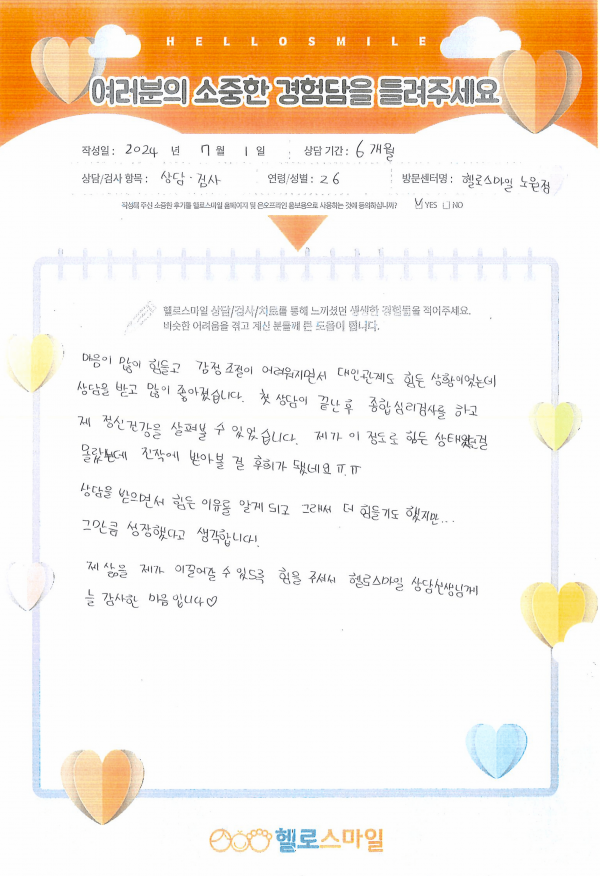 HELLOSMILE
여러분의 소중한 경험담을 들려주세요
작성일 : 2024 년 7 월 1 일 상담 기간 : 6 개월
상담/검사 항목 : 상담 · 검사 연령/성별 : 26 방문센터명 : 헬로스마일 노원점
작성해 주신 소중한 후기를 헬로스마일 홈페이지 및 온오프라인 홍보용으로 사용하는 것에 동의하십니까? ☑ YES ☐ NO
헬로스마일 상담/검사/치료를 통해 느끼셨던 생생한 경험담을 적어주세요.
비슷한 어려움을 겪고 계신 분들께 큰 도움이 됩니다.
마음이 많이 힘들고 감정 조절이 어려워지면서 대인관계도 힘든 상황이었는데
상담을 받고 많이 좋아졌습니다. 첫 상담이 끝난 후 종합심리검사를 하고
제 정신건강을 살펴볼 수 있었습니다. 제가 이 정도로 힘든 상태였던걸
몰랐는데 진작에 받아볼 걸 후회가 됐네요 ㅠ.ㅠ
상담을 받으면서 힘든 이유를 알게 되고 그래서 더 힘들기도 했지만...
그만큼 성장했다고 생각합니다!
제 삶을 제가 이끌어갈 수 있도록 힘을 주셔서 헬로스마일 상담선생님께
늘 감사한 마음입니다♡
헬로스마일